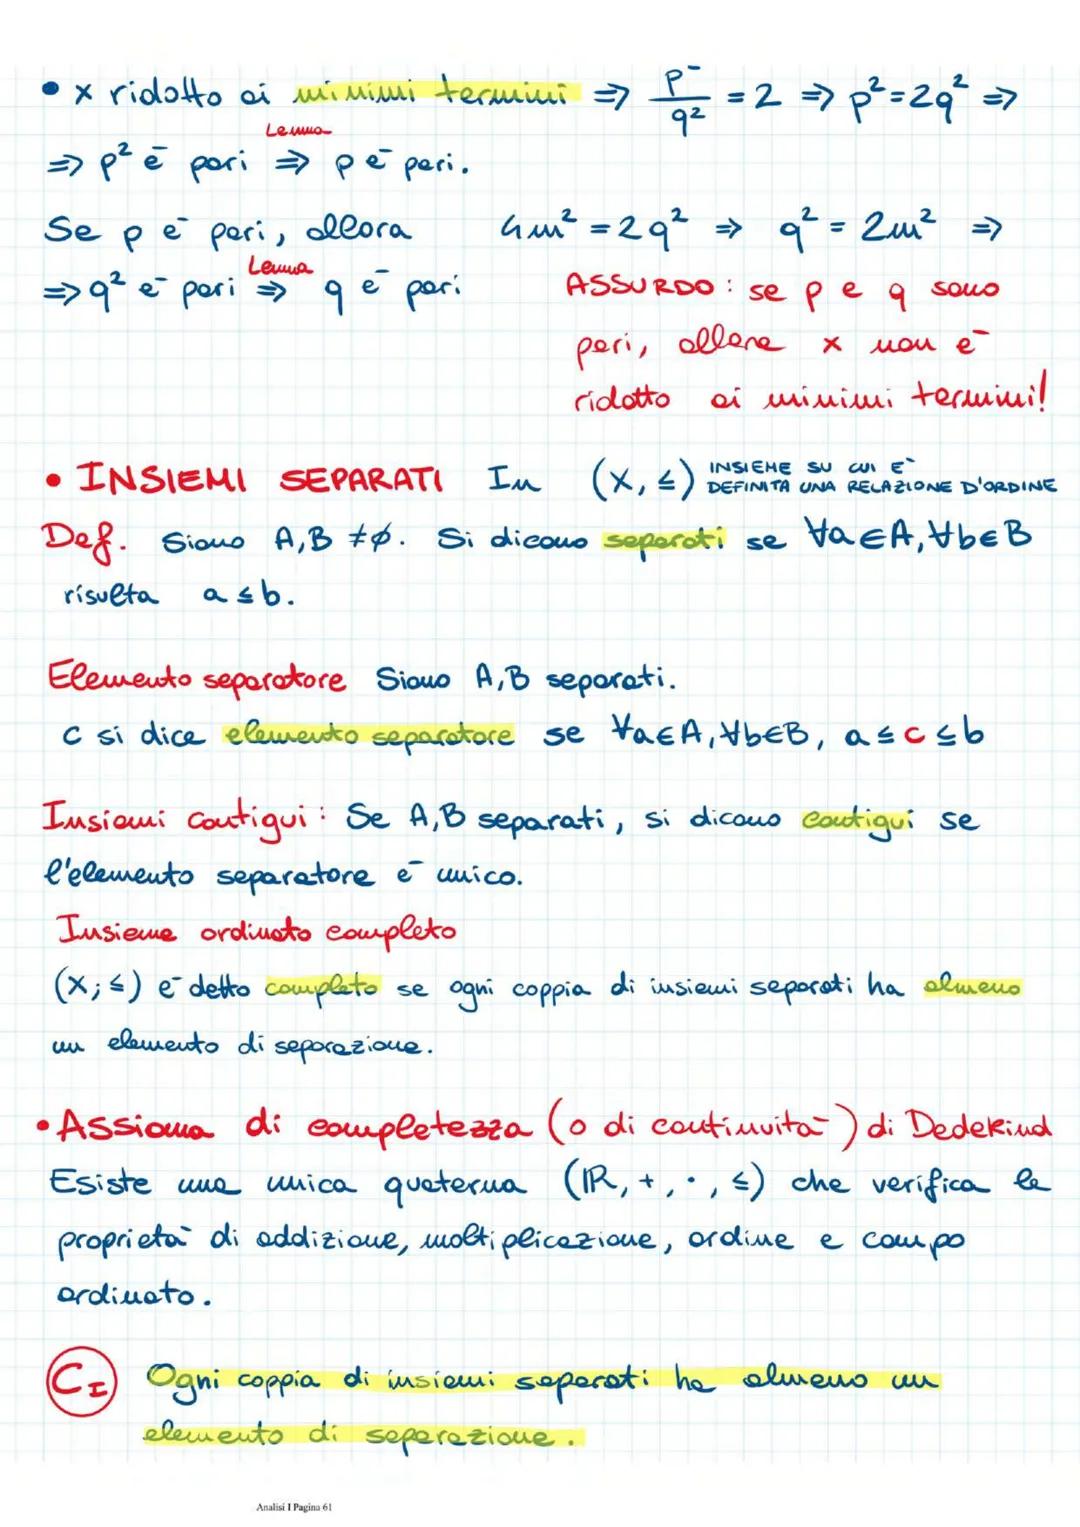 • x ridotto ai minimi termini ⇒ p²/q² = 2 ⇒ p² = 2q² ⇒
Lemma
⇒ p² è pari ⇒ p è pari.
Se p è pari, allora 4m² = 2q² ⇒ q² = 2m² ⇒
Lemma
⇒ q² è pari ⇒ q è pari
ASSURDO: se p e q sono
pari, allora x non è
ridotto ai minimi termini!
• INSIEMI SEPARATI In (X, ≤) INSIEME SU CUI E` DEFINITA UNA RELAZIONE D'ORDINE
Def. Siano A,B ≠ ∅. Si dicono separati se ∀a∈A, ∀b∈B
risulta a ≤ b.
Elemento separatore Siano A,B separati.
c si dice elemento separatore se ∀a∈A, ∀b∈B, a ≤ c ≤ b
Insiemi contigui: Se A,B separati, si dicono contigui se
l'elemento separatore è unico.
Insieme ordinato completo
(X; ≤) è detto completo se ogni coppia di insiemi separati ha almeno
un elemento di separazione.
• Assioma di completezza (o di continuità) di Dedekind
Esiste una unica quaterna (ℝ, +, ·, ≤) che verifica le
proprietà di addizione, moltiplicazione, ordine e campo
ordinato.
C_I Ogni coppia di insiemi separati ha almeno un
elemento di separazione.
Analisi I Pagina 61